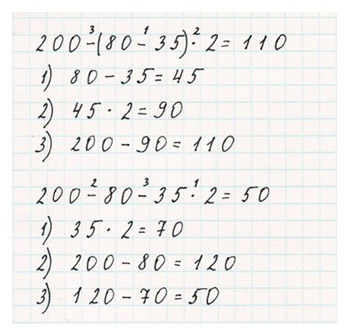 200-³(80-¹35)·²2=110
1) 80-35=45
2) 45·2=90
3) 200-90=110
200-²80-³35·¹2=50
1) 35·2=70
2) 200-80=120
3) 120-70=50